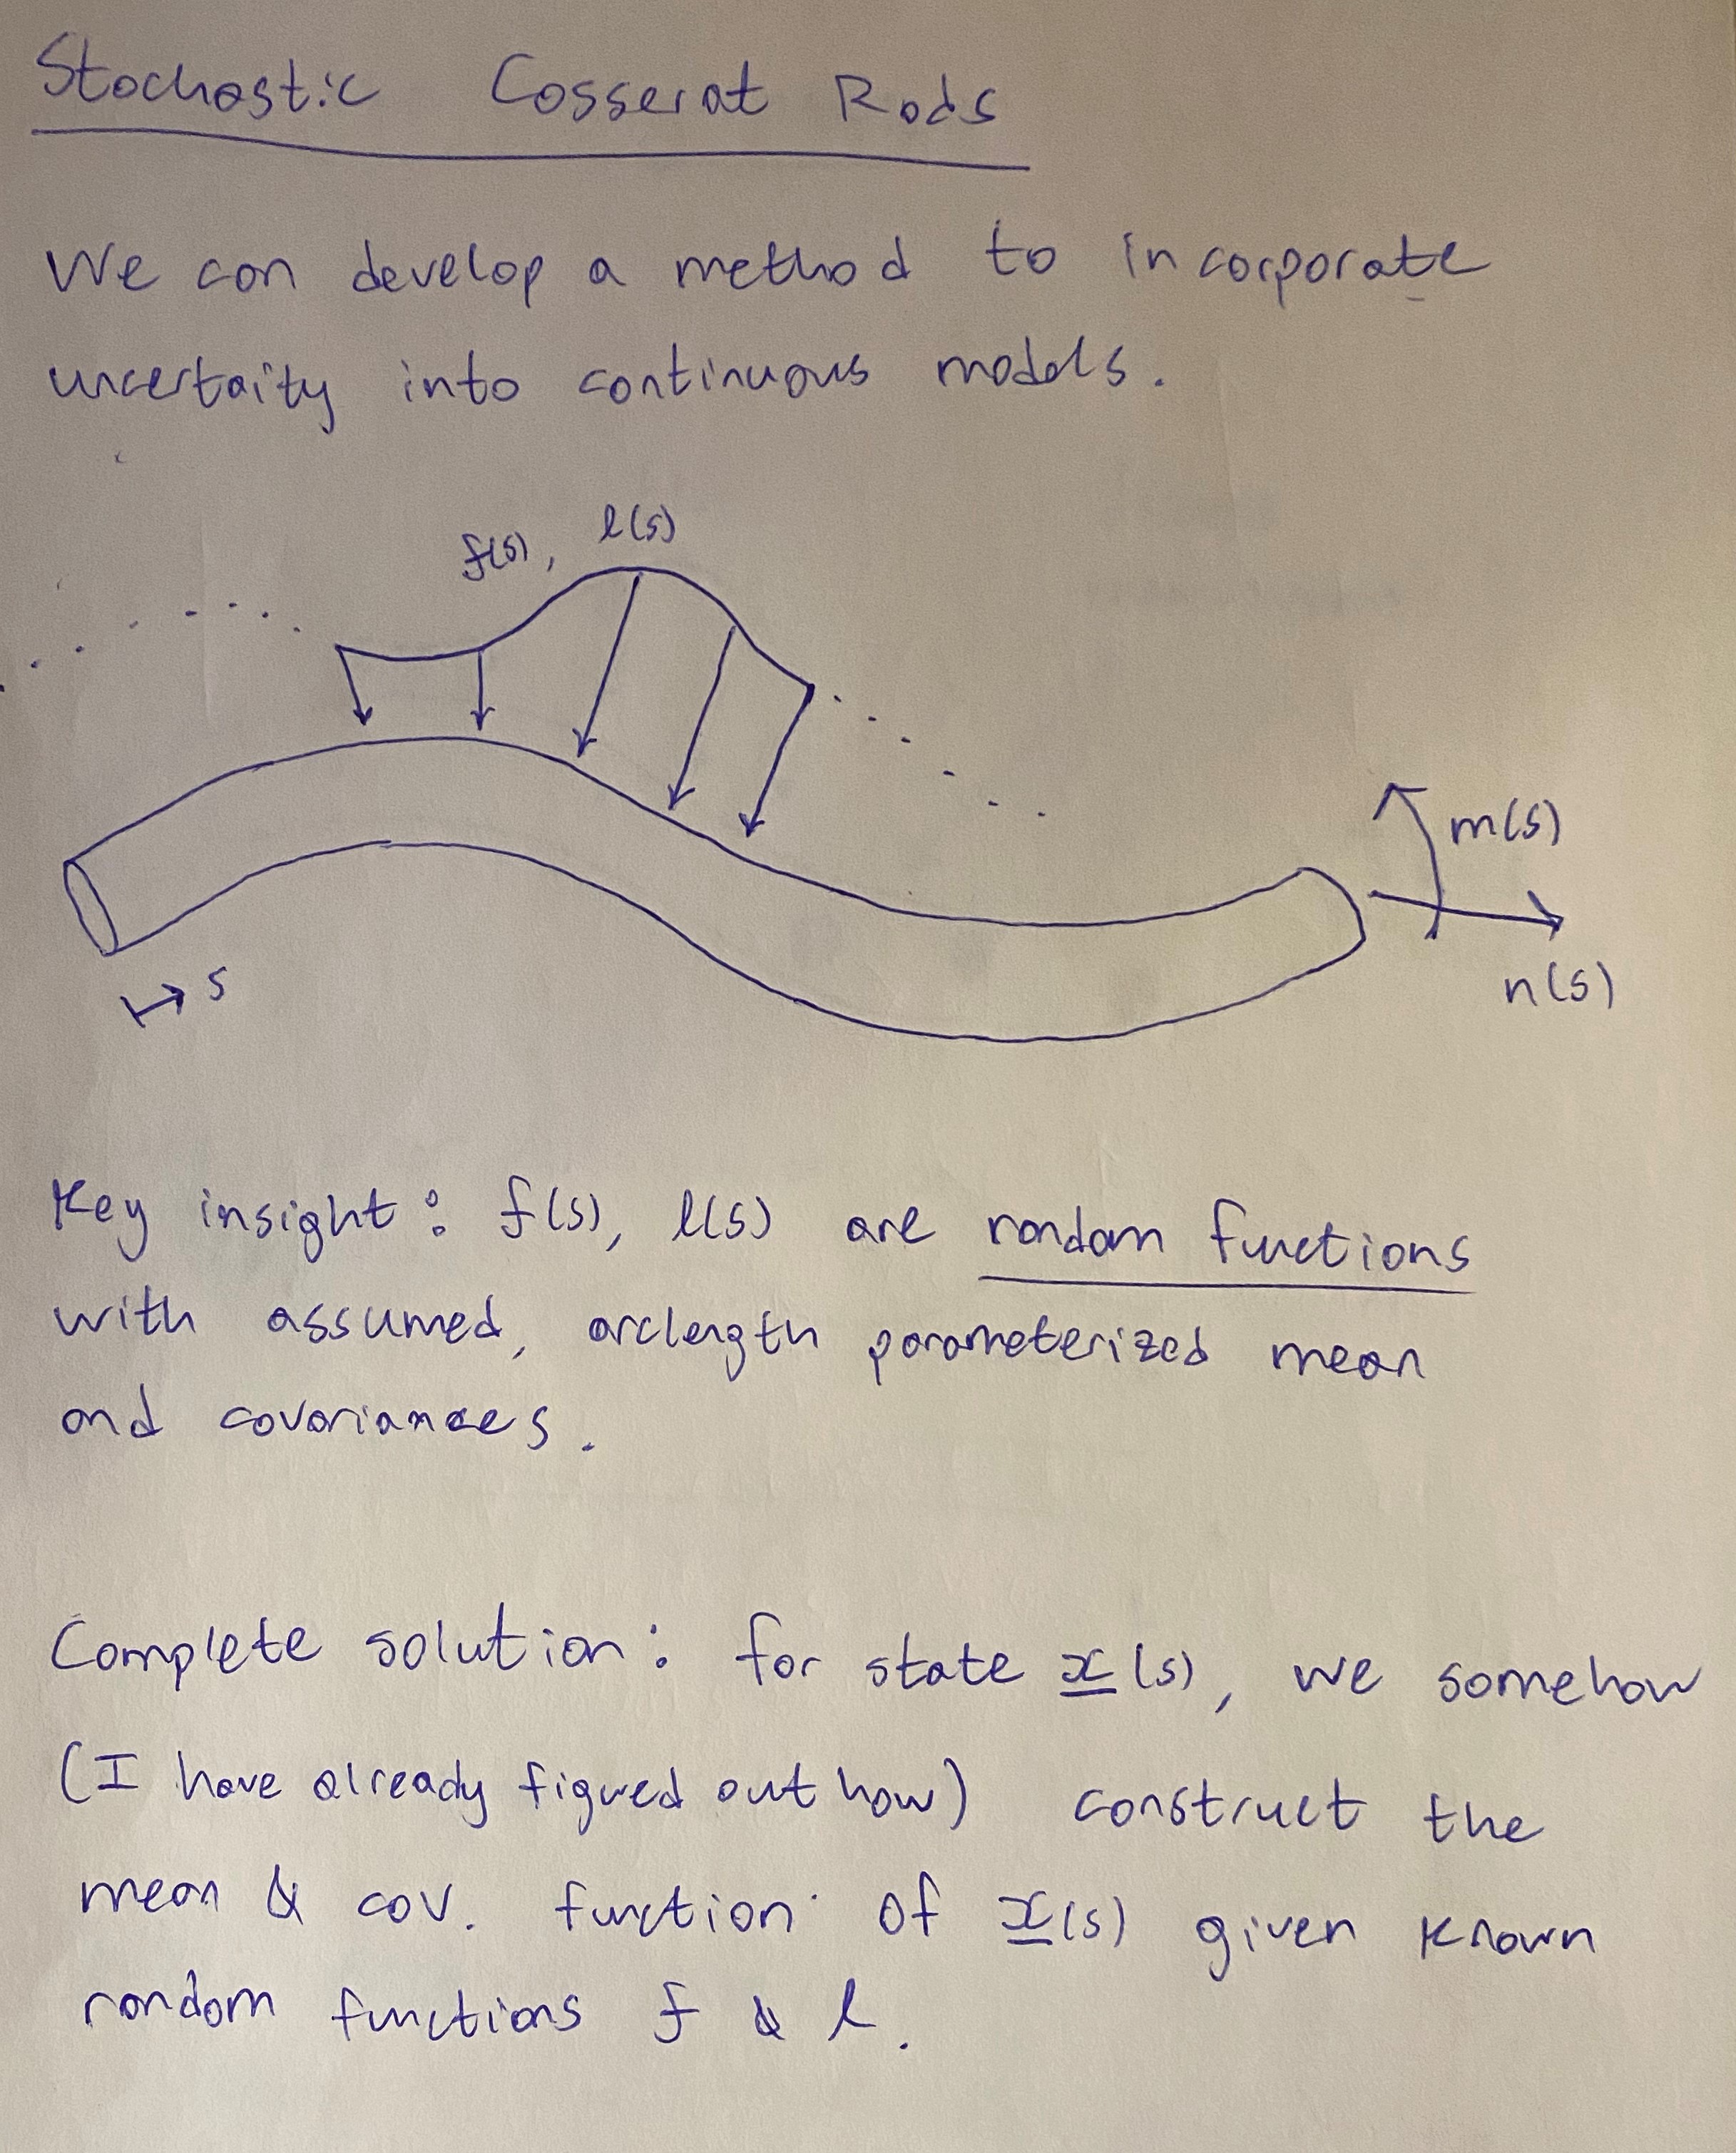 Stochastic Cosserat Rods
We can develop a method to incorporate
uncertaity into continuous models.
f(s), l(s)
m(s)
n(s)
s
Key insight: f(s), l(s) are random functions
with assumed, arclength parameterized mean
and covariances.
Complete solution: for state x(s), we somehow
(I have already figured out how) construct the
mean & cov. function of x(s) given known
random functions f & l.